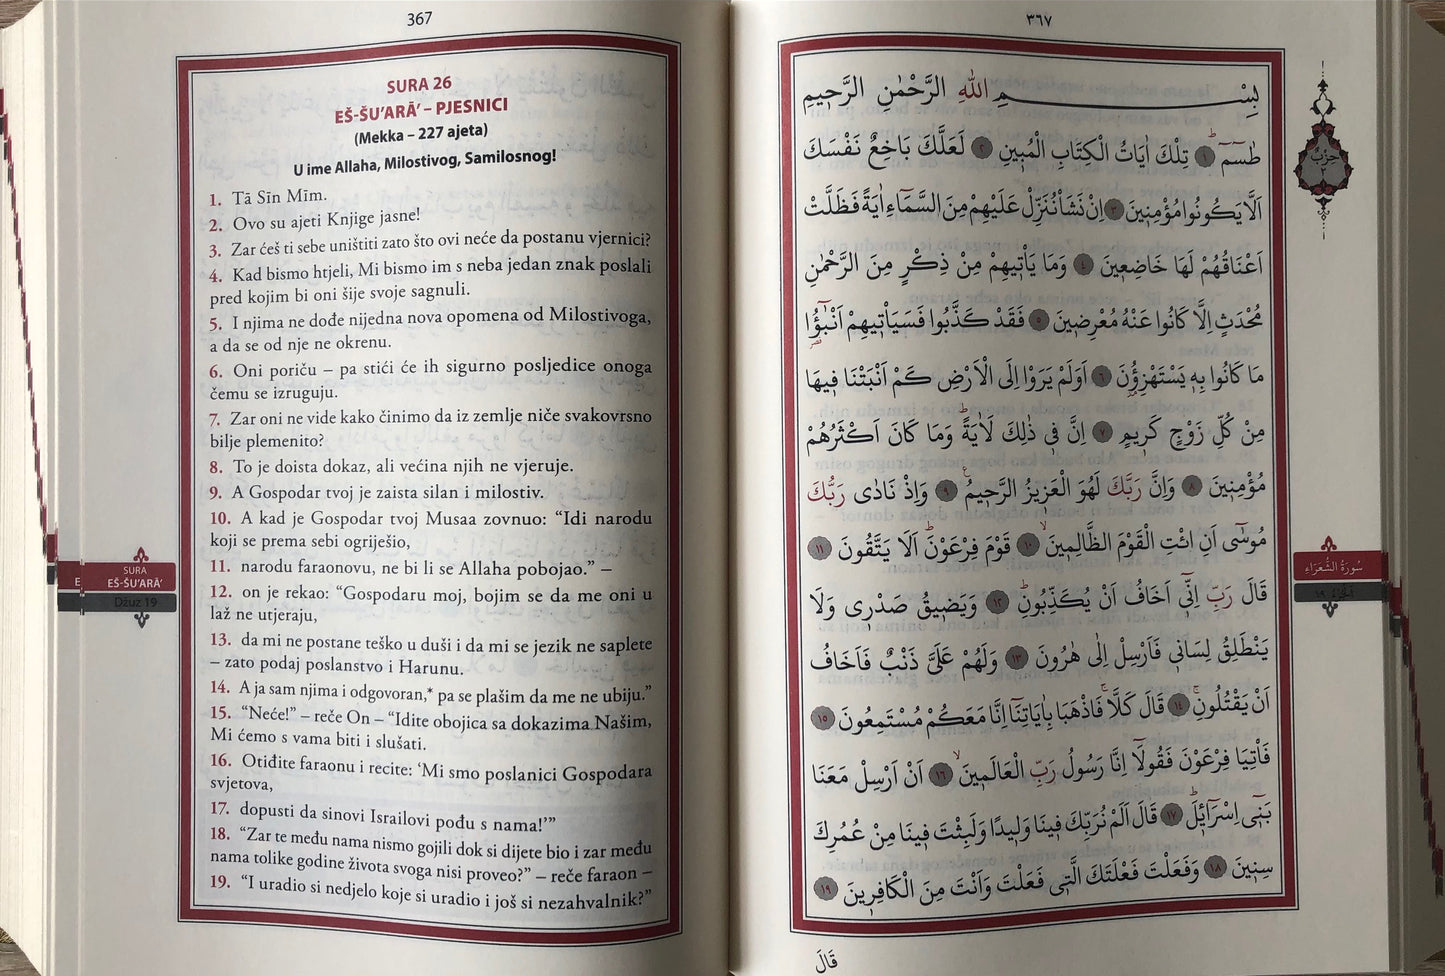 367
SURA 26
EŠ-ŠU’ARĀ’ – PJESNICI
(Mekka – 227 ajeta)
U ime Allaha, Milostivog, Samilosnog!
1. Tā Sīn Mīm.
2. Ovo su ajeti Knjige jasne!
3. Zar ćeš ti sebe uništiti zato što ovi neće da postanu vjernici?
4. Kad bismo htjeli, Mi bismo im s neba jedan znak poslali
pred kojim bi oni šije svoje sagnuli.
5. I njima ne dođe nijedna nova opomena od Milostivoga,
a da se od nje ne okrenu.
6. Oni poriču – pa stići će ih sigurno posljedice onoga
čemu se izruguju.
7. Zar oni ne vide kako činimo da iz zemlje niče svakovrsno
bilje plemenito?
8. To je doista dokaz, ali većina njih ne vjeruje.
9. A Gospodar tvoj je zaista silan i milostiv.
10. A kad je Gospodar tvoj Musaa zovnuo: “Idi narodu
koji se prema sebi ogriješio,
11. narodu faraonovu, ne bi li se Allaha pobojao.” –
12. on je rekao: “Gospodaru moj, bojim se da me oni u
laž ne utjeraju,
13. da mi ne postane teško u duši i da mi se jezik ne saplete
– zato podaj poslanstvo i Harunu.
14. A ja sam njima i odgovoran,* pa se plašim da me ne ubiju.”
15. “Neće!” – reče On – “Idite obojica sa dokazima Našim,
Mi ćemo s vama biti i slušati.
16. Otiđite faraonu i recite: ‘Mi smo poslanici Gospodara
svjetova,
17. dopusti da sinovi Israilovi pođu s nama!’”
18. “Zar te među nama nismo gojili dok si dijete bio i zar među
nama tolike godine života svoga nisi proveo?” – reče faraon –
19. “I uradio si nedjelo koje si uradio i još si nezahvalnik?”
SURA
EŠ-ŠU’ARĀ’
Džuz 19
٣٦٧
بِسْمِ اللّٰهِ الرَّحْمٰنِ الرَّحٖيمِ
طٰسٓمٓ ١ تِلْكَ اٰيَاتُ الْكِتَابِ الْمُبٖينِ ٢ لَعَلَّكَ بَاخِعٌ نَفْسَكَ
اَلَّا يَكُونُوا مُؤْمِنٖينَ ٣ اِنْ نَشَأْ نُنَزِّلْ عَلَيْهِمْ مِنَ السَّمَٓاءِ اٰيَةً فَظَلَّتْ
اَعْنَاقُهُمْ لَهَا خَاضِعٖينَ ٤ وَمَا يَأْتٖيهِمْ مِنْ ذِكْرٍ مِنَ الرَّحْمٰنِ
مُحْدَثٍ اِلَّا كَانُوا عَنْهُ مُعْرِضٖينَ ٥ فَقَدْ كَذَّبُوا فَسَيَأْتٖيهِمْ اَنْبٰٓؤُا
مَا كَانُوا بِهٖ يَسْتَهْزِؤُنَ ٦ اَوَلَمْ يَرَوْا اِلَى الْاَرْضِ كَمْ اَنْبَتْنَا فٖيهَا
مِنْ كُلِّ زَوْجٍ كَرٖيمٍ ٧ اِنَّ فٖى ذٰلِكَ لَاٰيَةً وَمَا كَانَ اَكْثَرُهُمْ
مُؤْمِنٖينَ ٨ وَاِنَّ رَبَّكَ لَهُوَ الْعَزٖيزُ الرَّحٖيمُ ٩ وَاِذْ نَادٰى رَبُّكَ
مُوسٰٓى اَنِ ائْتِ الْقَوْمَ الظَّالِمٖينَ ١٠ قَوْمَ فِرْعَوْنَ اَلَا يَتَّقُونَ ١١
قَالَ رَبِّ اِنّٖٓى اَخَافُ اَنْ يُكَذِّبُونِ ١٢ وَيَضٖيقُ صَدْرٖى وَلَا
يَنْطَلِقُ لِسَانٖى فَاَرْسِلْ اِلٰى هٰرُونَ ١٣ وَلَهُمْ عَلَىَّ ذَنْبٌ فَاَخَافُ
اَنْ يَقْتُلُونِ ١٤ قَالَ كَلَّا فَاذْهَبَا بِاٰيَاتِنَٓا اِنَّا مَعَكُمْ مُسْتَمِعُونَ ١٥
فَأْتِيَا فِرْعَوْنَ فَقُولَٓا اِنَّا رَسُولُ رَبِّ الْعَالَمٖينَ ١٦ اَنْ اَرْسِلْ مَعَنَا
بَنٖٓى اِسْرَٓائٖلَ ١٧ قَالَ اَلَمْ نُرَبِّكَ فٖينَا وَلٖيدًا وَلَبِثْتَ فٖينَا مِنْ عُمُرِكَ
سِنٖينَ ١٨ وَفَعَلْتَ فَعْلَتَكَ الَّتٖى فَعَلْتَ وَاَنْتَ مِنَ الْكَافِرٖينَ ١٩
قَالَ
حِزْبٌ
٢
سُورَةُ الشُّعَرَاءِ
اَلْجُزْءُ ١٩